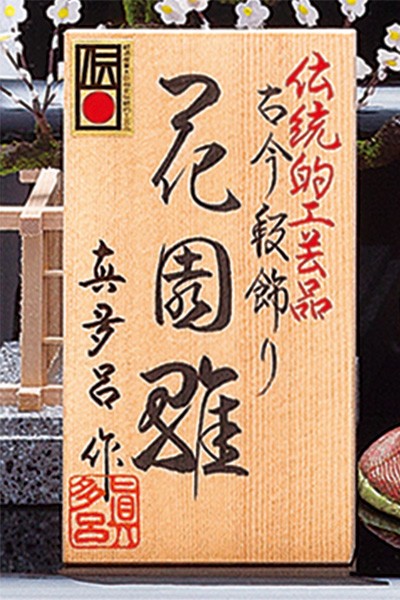 伝統的工芸品
古今段飾り
花園雛
真多呂作
真多呂